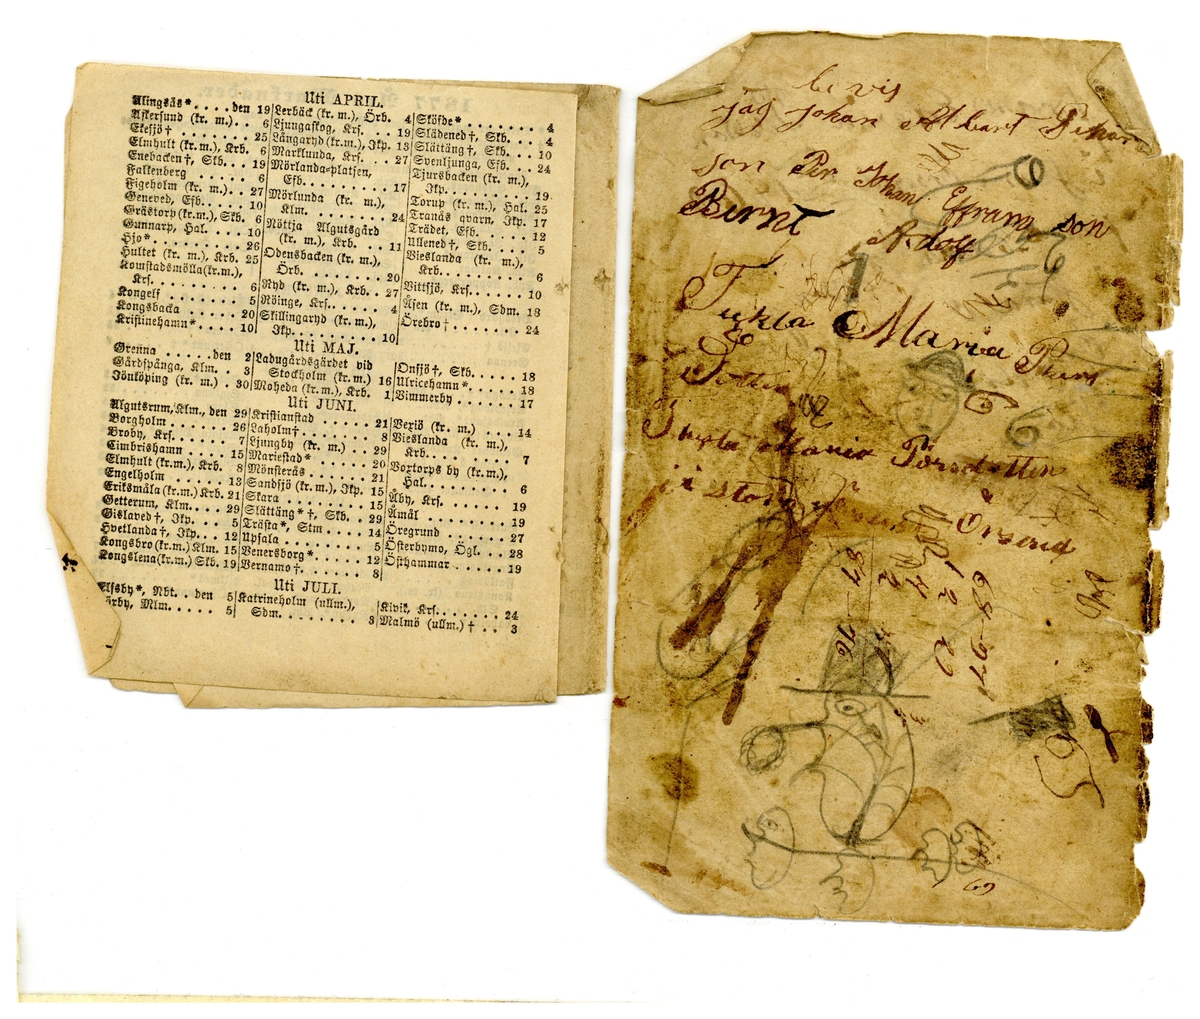 Uti APRIL.
Alingsås* . . . . den 19
Askersund (kr. m.) . . 6
Eksjö † . . . . . . . 25
Elmhult (kr. m.), Krb. 6
Enebacken †, Skb. . . 19
Falkenberg . . . . . . 6
Figeholm (kr. m.) . . 27
Geneved, Efb. . . . . 10
Grästorp (kr. m.), Skb. 6
Gunnarp, Hal. . . . . 10
Hjo* . . . . . . . . 26
Hultet (kr. m.), Krb. 25
Komstadsmölla (kr. m.),
Krs. . . . . . . . . . 6
Kongelf . . . . . . . 5
Kongsbacka . . . . . 20
Kristinehamn* . . . . 10
Lerbäck (kr. m.), Örb. 4
Ljungaskog, Krs. . . . 19
Långaryd (kr. m.), Jkp. 13
Marklunda, Krs. . . . 27
Mörlanda-platsen,
Efb. . . . . . . . . 17
Mörlunda (kr. m.),
Klm. . . . . . . . . 24
Nöttja Algutsgård
(kr. m.), Krb. . . . 11
Odensbacken (kr. m.),
Örb. . . . . . . . . 20
Ryd (kr. m.), Krb. . . 27
Röinge, Krs. . . . . . 4
Skillingaryd (kr. m.),
Jkp. . . . . . . . . 10
Sköfde* . . . . . . . 4
Slädened †, Skb. . . . 4
Slättäng †, Skb. . . . 10
Svenljunga, Efb. . . . 24
Tjursbacken (kr. m.),
Jkp. . . . . . . . . 19
Torup (kr. m.), Hal. 25
Tranås qvarn, Jkp. 17
Trädet, Efb. . . . . 12
Ullened †, Skb. . . . 5
Vieslanda (kr. m.),
Krb. . . . . . . . . 6
Vittsjö, Krs. . . . . 10
Åsen (kr. m.), Sdm. 18
Örebro † . . . . . . 24
Uti MAJ.
Grenna . . . . . den 2
Gårdspånga, Klm. . . 3
Jönköping (kr. m.) . 30
Ladugårdsgärdet vid
Stockholm (kr. m.) 16
Moheda (kr. m.), Krb. 1
Onsjö †, Skb. . . . . 18
Ulricehamn* . . . . . 18
Vimmerby . . . . . . 17
Uti JUNI.
Algutsrum, Klm., den 29
Borgholm . . . . . . 26
Broby, Krs. . . . . . 7
Cimbrishamn . . . . . 15
Elmhult (kr. m.), Krb. 8
Engelholm . . . . . . 13
Eriksmåla (kr. m.) Krb. 21
Getterum, Klm. . . . 29
Gislaved †, Jkp. . . . 5
Hvetlanda †, Jkp. . . 12
Kongsbro (kr. m.) Klm. 15
Kongslena (kr. m.) Skb. 19
Kristianstad . . . . . 21
Laholm † . . . . . . . 8
Ljungby (kr. m.) . . . 29
Mariestad* . . . . . . 20
Mönsterås . . . . . . 21
Sandsjö (kr. m.), Jkp. 15
Skara . . . . . . . . 15
Slättäng* †, Skb. . . 29
Trästa*, Stm . . . . 14
Upsala . . . . . . . . 5
Venersborg* . . . . . 12
Vernamo † . . . . . . 8
Vexiö (kr. m.) . . . . 14
Vieslanda (kr. m.),
Krb. . . . . . . . . 7
Voxtorps by (kr. m.),
Hal. . . . . . . . . 6
Åby, Krs. . . . . . . 19
Åmål . . . . . . . . 19
Öregrund . . . . . . 27
Österbymo, Ögl. . . 28
Östhammar . . . . . 19
Uti JULI.
Elfsby*, Nbt. . . den 5
Katrineholm (ullm.),
Sdm. . . . . . . . . 3
Kivik, Krs. . . . . . 24
Malmö (ullm.) † . . 3
bevis
jag Johan Albart
son Per Johan Effraim son
Bernt Adolf
Tekla Maria Pers
Dotter
Tekla Maria Persdotter
i stora